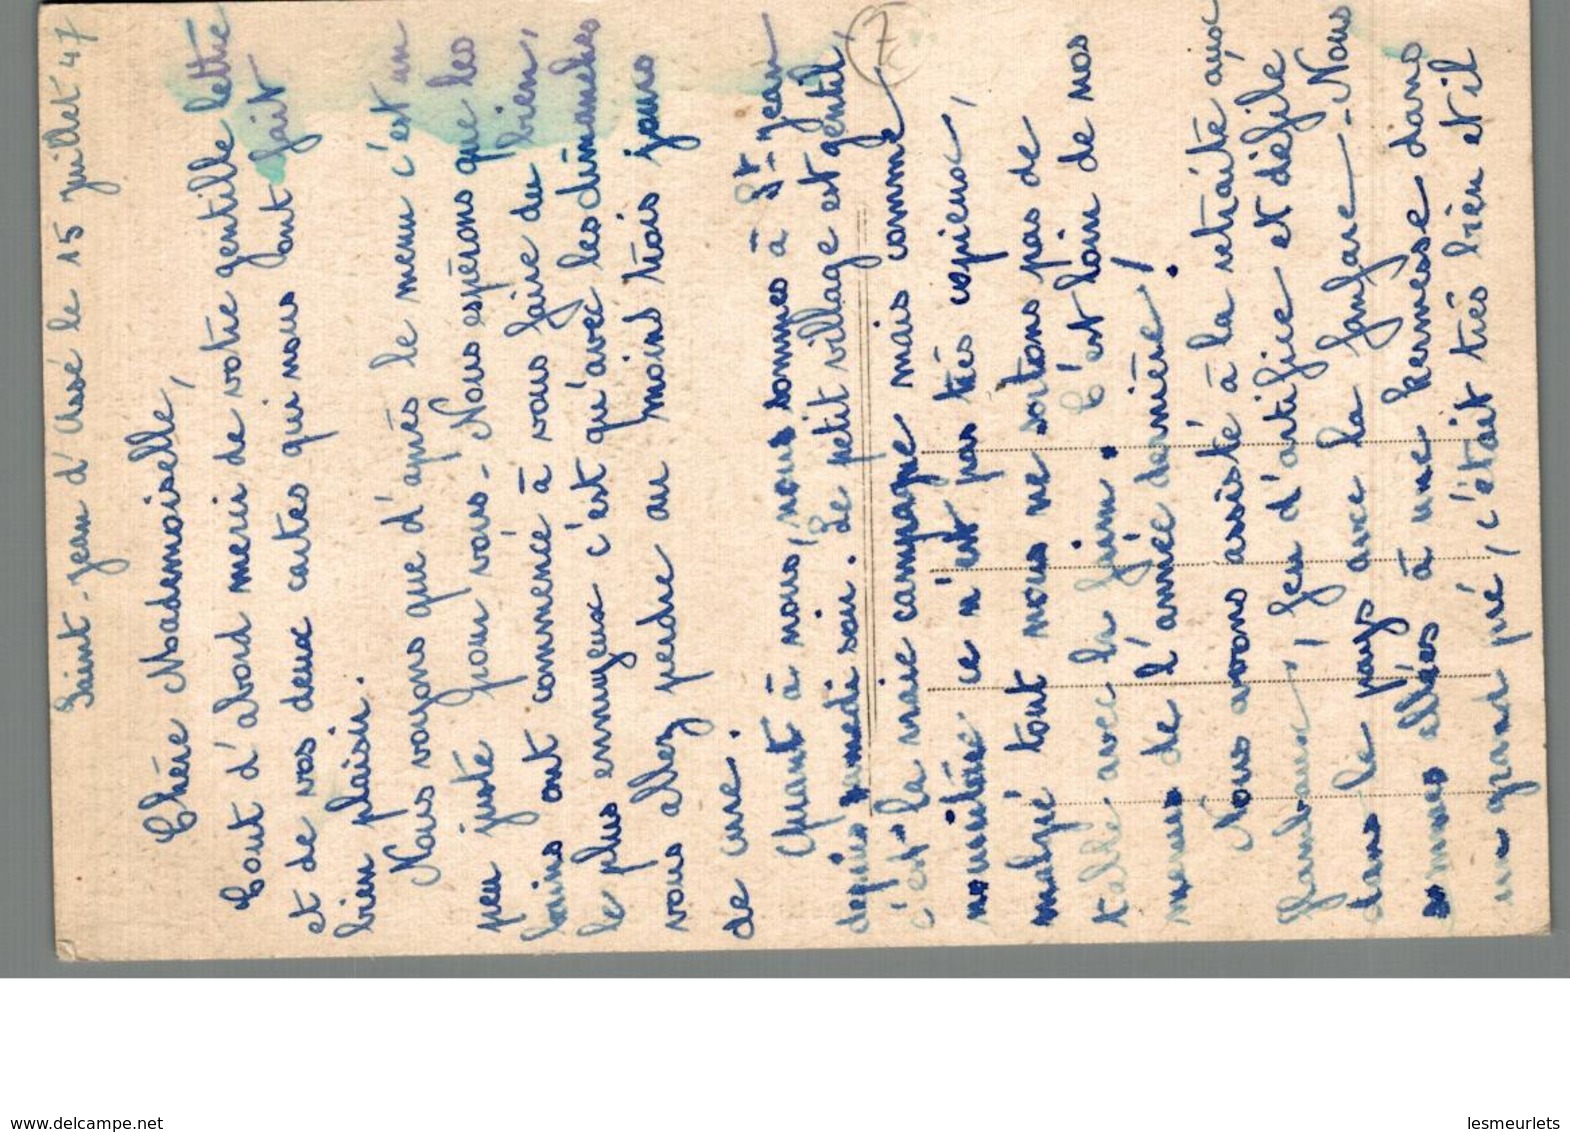 Saint-Jean d'Assé le 15 juillet 47
Chère Mademoiselle,
Tout d'abord merci de votre gentille lettre
et de vos deux cartes qui nous font fait
bien plaisir.
Nous voyons que d'après le menu c'est un
peu juste pour vous - Nous espérons que les
bains ont commencé à vous faire du bien,
le plus ennuyeux c'est qu'avec les dimanches
vous allez perdre au moins trois jours
de cure.
Quant à nous, nous sommes à St-Jean
depuis samedi soir. Le petit village est gentil,
c'est la vraie campagne mais comme
nourriture ce n'est pas très copieux,
malgré tout nous ne sortons pas de
table avec la faim. C'est loin de nos
menus de l'année dernière!
Nous avons assisté à la retraite aux
flambeaux, feu d'artifice et défilé
dans le pays avec la fanfare - Nous
sommes allées à une kermesse dans
un grand pré, c'était très bien et il
7
www.delcampe.net
lesmeurlets